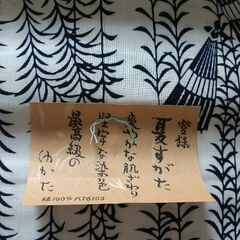 登録
夏すがた
爽やかな肌ざわり
堅牢な染色
最高級の
ゆかた
木綿100% パT6103